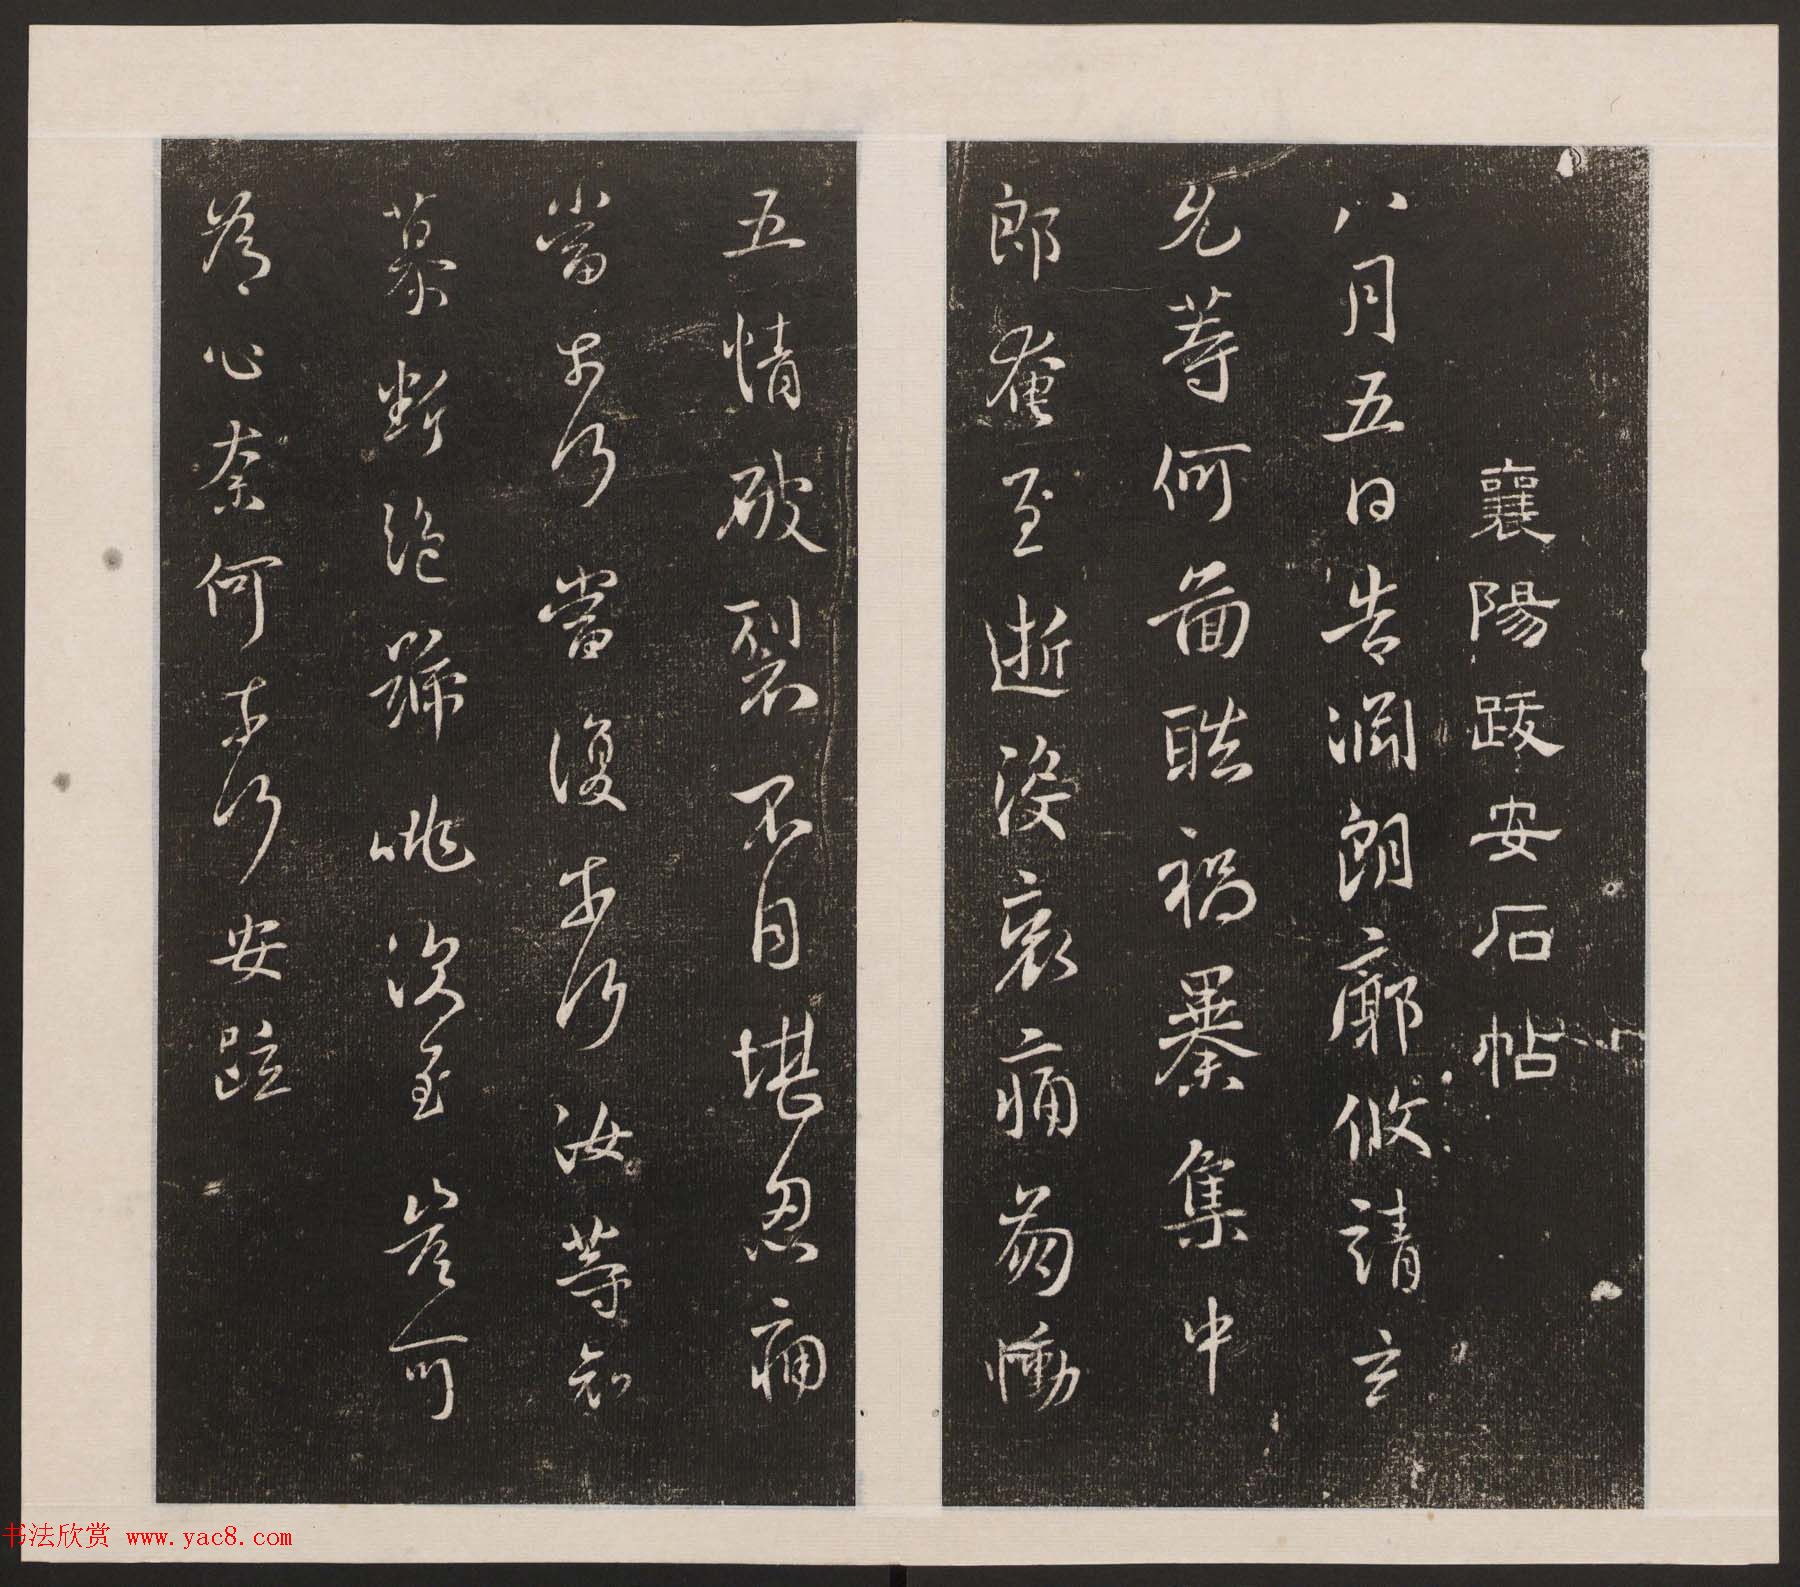 襄陽跋安石帖
八月五日告淵朗廓攸靖玄
允等何圖酷禍暴集中
郎奄至逝沒哀痛崩慟
五情破裂不自堪忍痛
當奈何當復奈何汝等哀
慕斷絕號咷深至豈可
為心奈何奈何安疏
书法欣赏 www.yac8.com